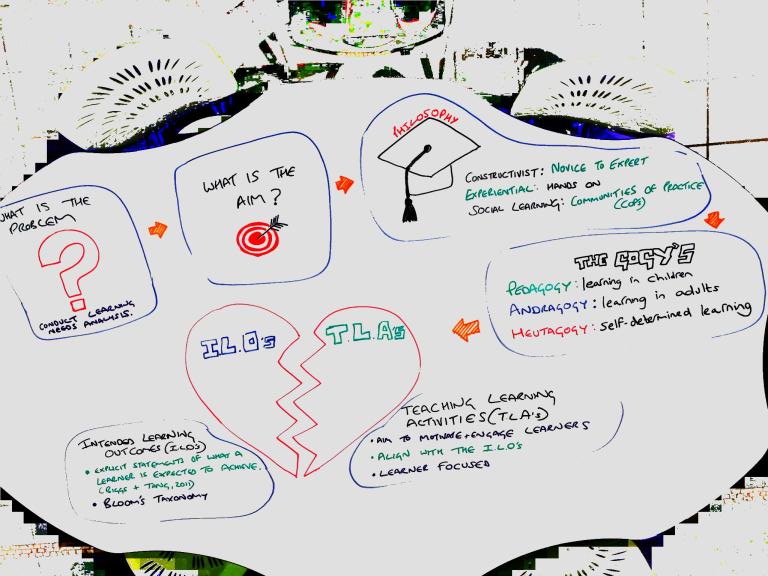 WHAT IS THE
PROBLEM
CONDUCT LEARNING
NEEDS ANALYSIS.
WHAT IS THE
AIM?
PHILOSOPHY
CONSTRUCTIVIST: NOVICE TO EXPERT
EXPERIENTIAL: HANDS ON
SOCIAL LEARNING: COMMUNITIES OF PRACTICE
(COPS)
THE GOGY'S
PEDAGOGY: learning in children
ANDRAGOGY: learning in adults
HEUTAGOGY: self-determined learning
I.L.O's
T.L.A's
INTENDED LEARNING
OUTCOMES (ILO'S)
• EXPLICIT STATEMENTS OF WHAT A
LEARNER IS EXPECTED TO ACHIEVE.
(BIGGS + TANG, 2011)
• BLOOM'S TAXONOMY
TEACHING LEARNING
ACTIVITIES (TLA'S)
• AIM TO MOTIVATE + ENGAGE LEARNERS
• ALIGN WITH THE I.L.O'S
• LEARNER FOCUSED